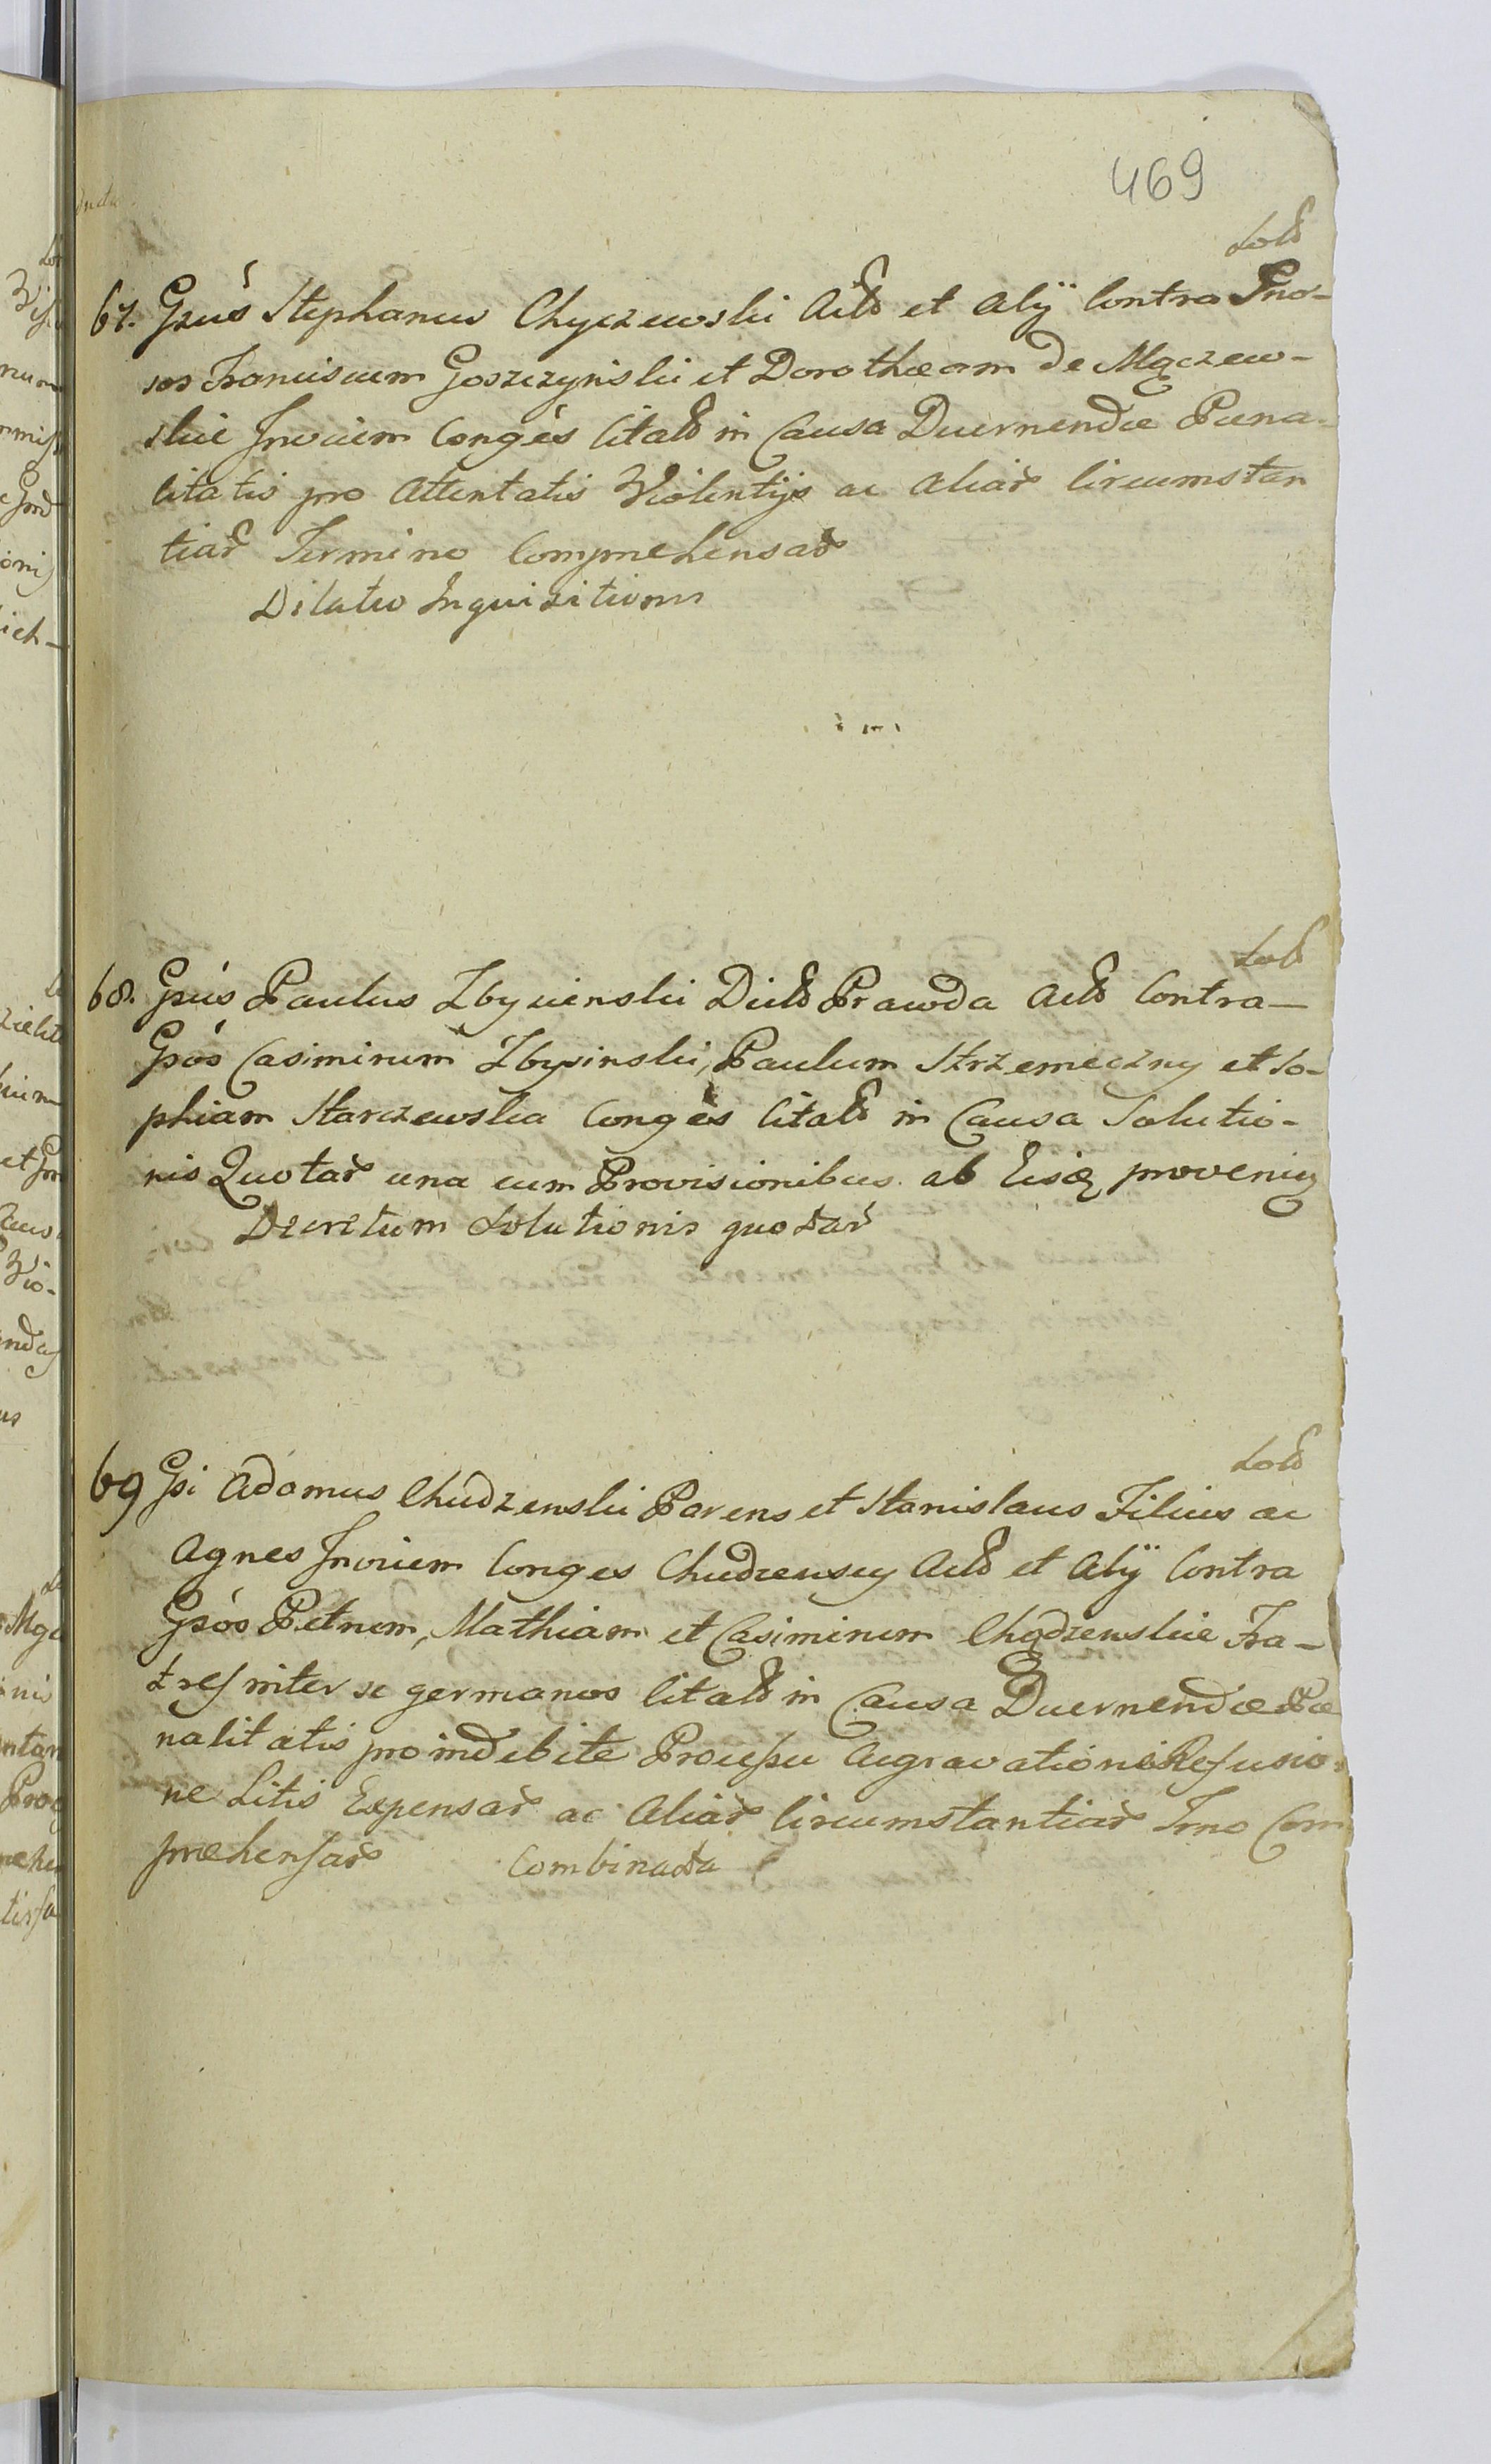 469
67. Gnus Stephanus Chyczewski Actor et Alij Contra Gno-
sos Franciscum Goszczynski et Dorotheam de Mączew-
skie Invicem Conges Citatos in Causa Decernendæ Pœna-
litatis pro Attentatis Violentijs ac Aliar Circumstan
tiar Termino Comprehensar
Dilatio Inquisitionis
68. Gsus Paulus Zbyienski Dictus Prawda Actor Contra
Gsos Casimirum Zbyinski, Paulum Strzemeczny et So-
phiam Starczewska Conges Citatos in Causa Solutio-
nis Quotar una cum Provisionibus ab Eisq proveniq
Decretum Solutionis quotar
69 Gsi Adamus Chudzenski Parens et Stanislaus Filius ac
Agnes Invicem Conges Chudzenscy Act et Alij Contra
Gsos Petrum, Mathiam et Casimirum Chądzenskie Fra-
tres inter se germanos Citatos in Causa Decernendæ Pœ
nalitatis pro indebite Processu Aggravatione Refusio-
ne Litis Expensar ac Aliar Circumstantiar Tmo Com
prehensar Combinata